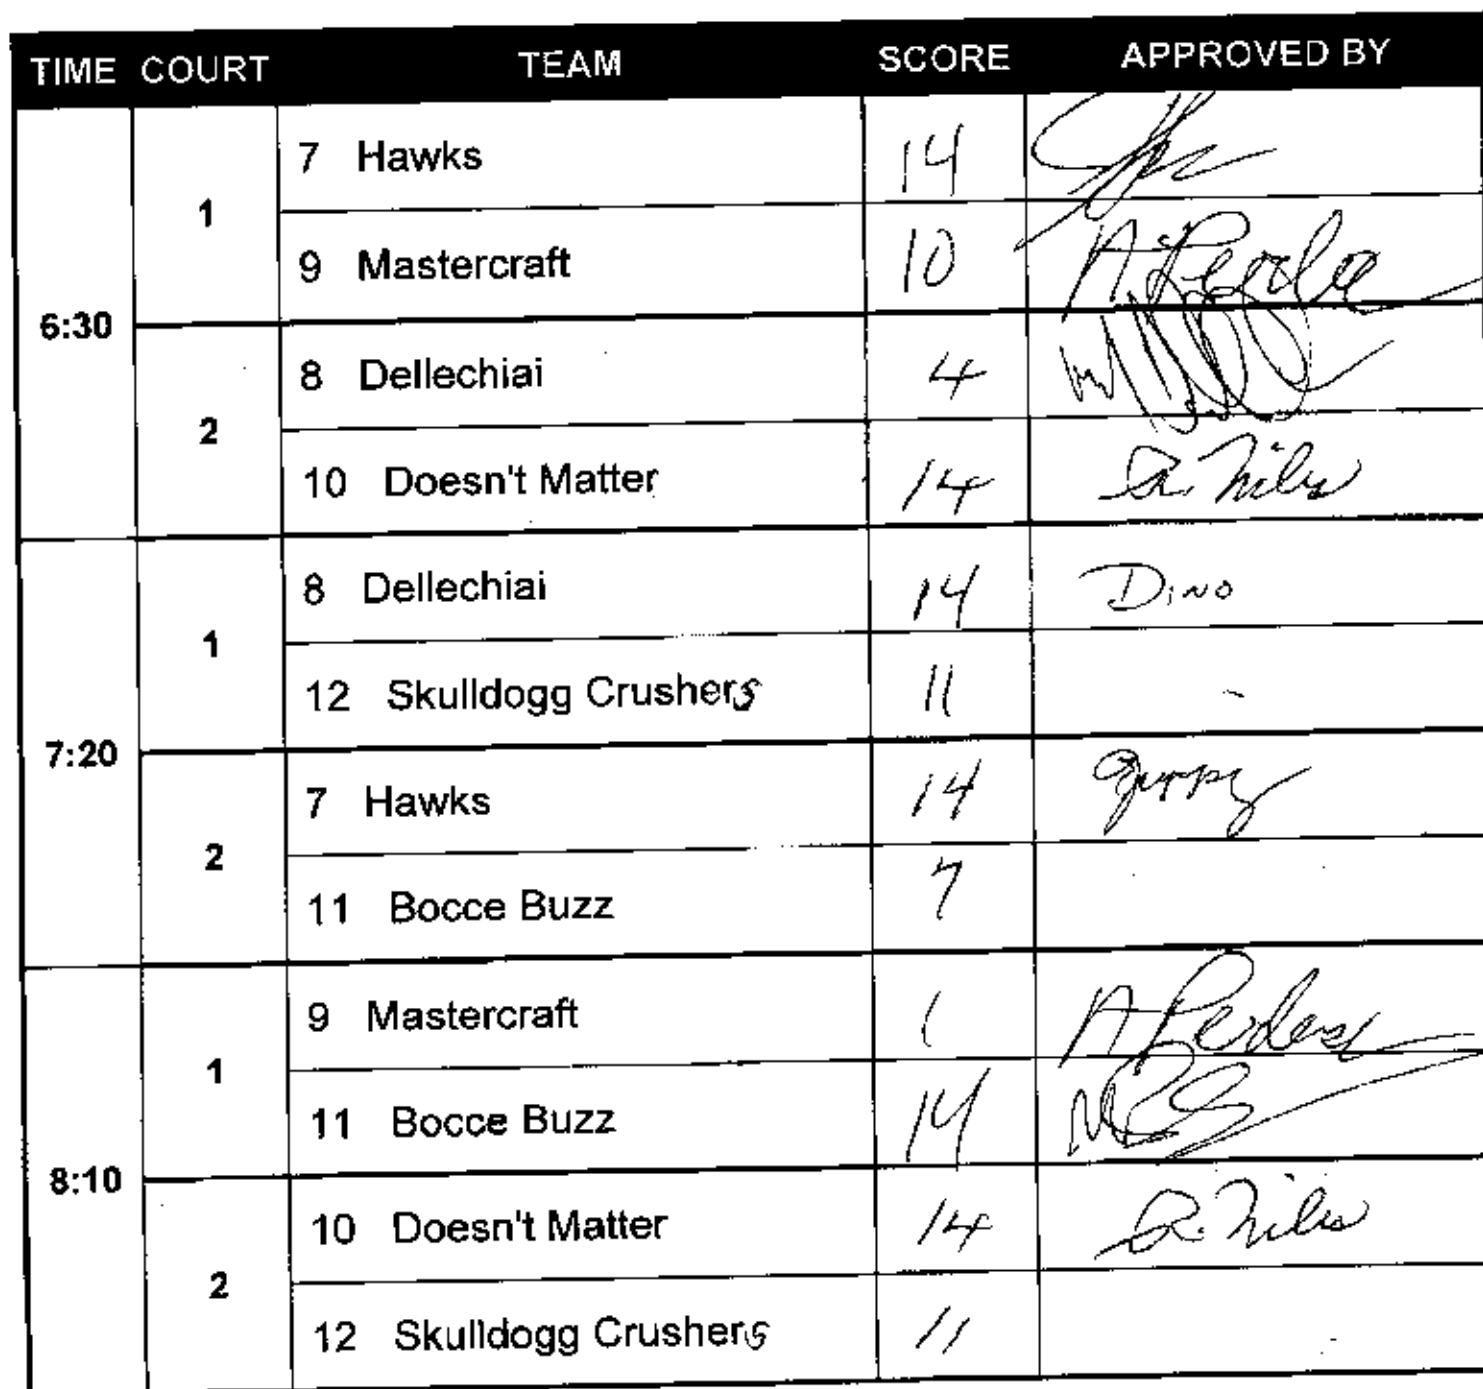 TIME COURT TEAM SCORE APPROVED BY
6:30
1
7 Hawks 14
9 Mastercraft 10
2
8 Dellechiai 4
10 Doesn't Matter 14 R. Niles
7:20
1
8 Dellechiai 14 Dino
12 Skulldogg Crushers 11
2
7 Hawks 14
11 Bocce Buzz 7
8:10
1
9 Mastercraft 1
11 Bocce Buzz 14
2
10 Doesn't Matter 14 R. Niles
12 Skulldogg Crushers 11